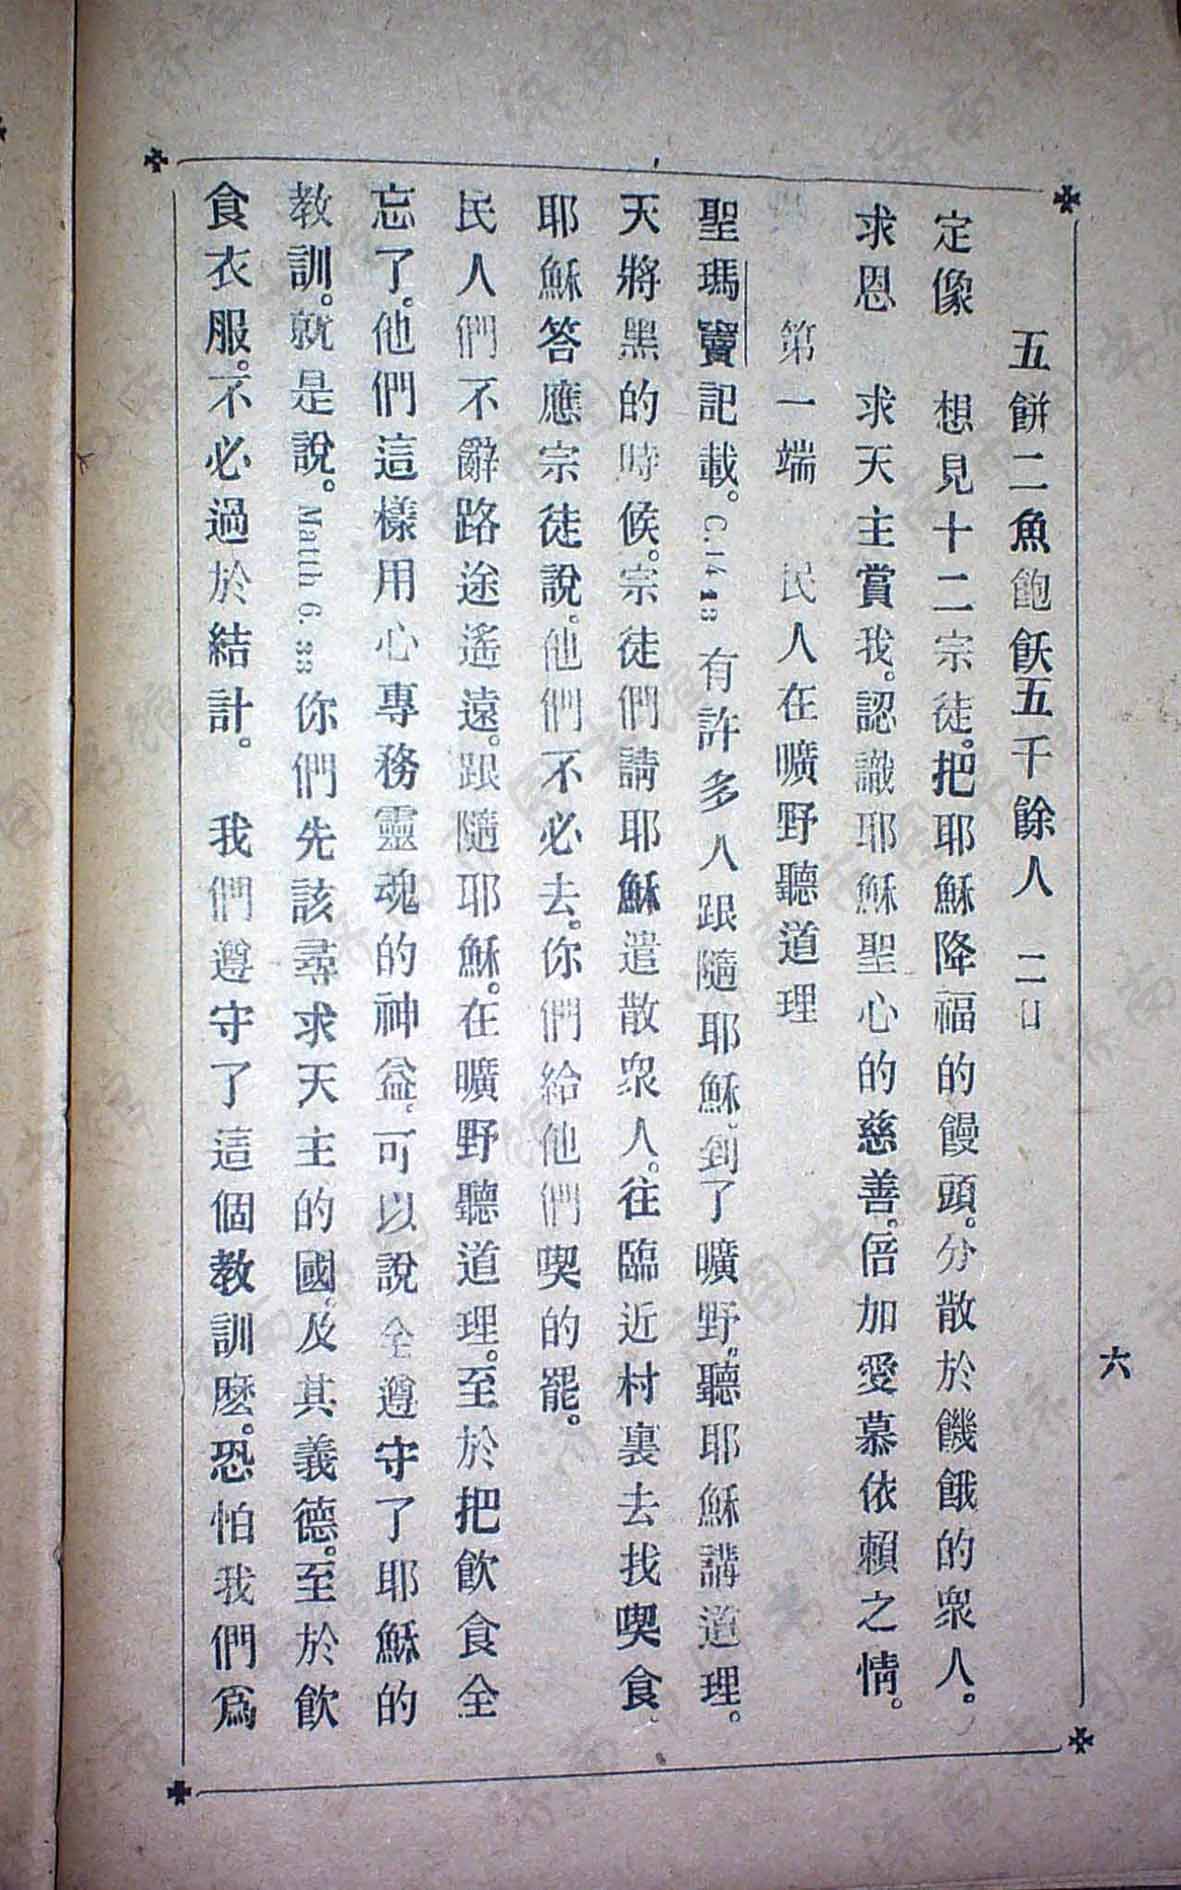 五餅二魚飽飫五千餘人　二日
定像　想見十二宗徒。把耶穌降福的饅頭。分散於饑餓的衆人。
求恩　求天主賞我。認識耶穌聖心的慈善。倍加愛慕依賴之情。
第一端　民人在曠野聽道理
聖瑪竇記載。C. 14 13 有許多人跟隨耶穌。到了曠野。聽耶穌講道理。
天將黑的時候。宗徒們請耶穌遣散衆人。往臨近村裏去找喫食。
耶穌答應宗徒說。他們不必去。你們給他們喫的罷。
民人們不辭路途遙遠。跟隨耶穌。在曠野聽道理。至於把飲食全
忘了。他們這樣用心專務靈魂的神益、可以說全遵守了耶穌的
教訓。就是說。Matth 6. 33 你們先該尋求天主的國。及其義德。至於飲
食衣服。不必過於結計。　我們遵守了這個教訓麽。恐怕我們爲
六